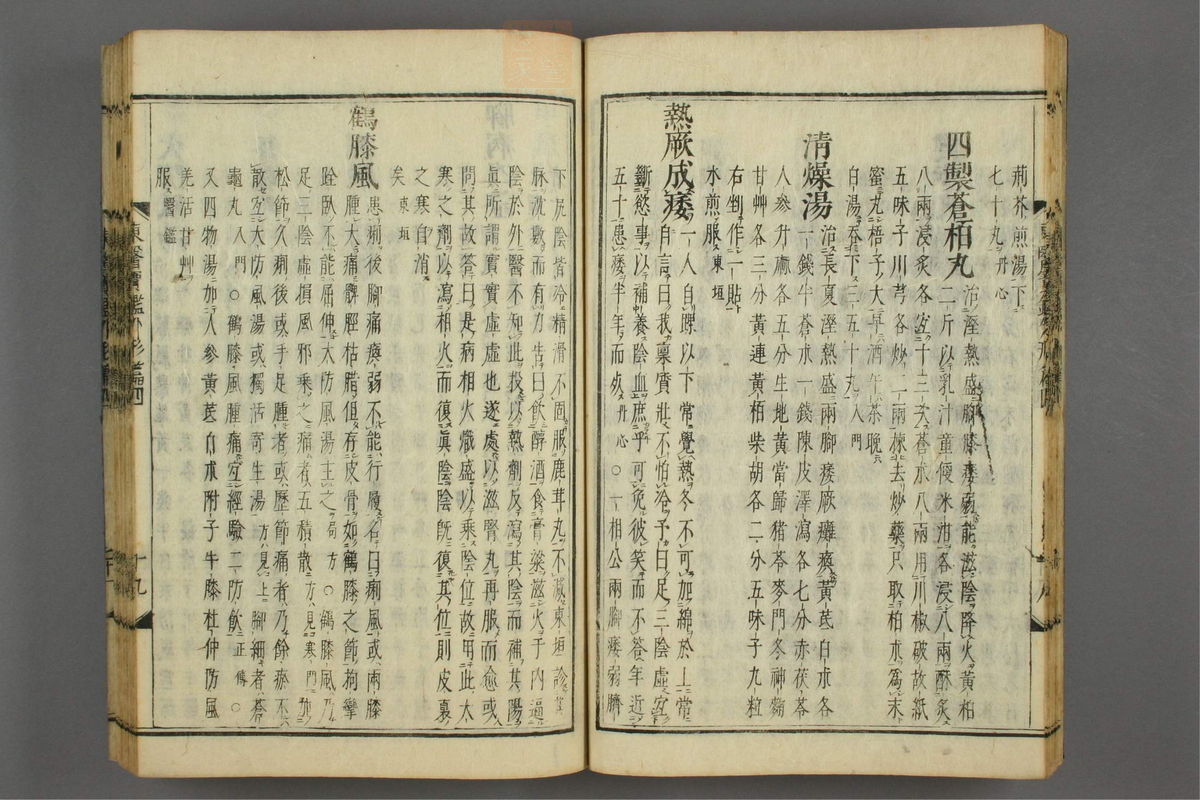 荊芥煎湯下
七十丸丹心
四製蒼栢丸 治溼熱盛腳膝痿弱能滋陰降火黃栢
二斤以乳汁童便米泔各浸八兩酥炙
八兩浸炙各宜十三次蒼朮八兩用川椒破故紙
五味子川芎各炒二兩揀去炒藥只取栢朮爲末
蜜丸梧子大早酒午茶晚
白湯吞下三五十丸入門
清燥湯 治長夏溼熱盛兩腳痿厥癱瘓黃芪白朮各
一錢半蒼朮一錢陳皮澤瀉各七分赤茯苓
人參升麻各五分生地黃當歸猪苓麥門冬神麴
甘艸各三分黃連黃栢柴胡各二分五味子九粒
右剉作一貼
水煎服東垣
熱厥成痿 一人自踝以下常覺熱冬不可加綿於上常
自言曰我稟質壯不怕冷予曰足三陰虛宜
斷慾事以補養陰血庶乎可免彼笑而不答年近
五十患痿半年而歿丹心○一相公兩腳痿弱臍
下尻陰皆冷精滑不固服鹿茸丸不減東垣診其
脉沈數而有力告曰飮醇酒食膏粱滋火于內逼
陰於外醫不知此投以熱劑反瀉其陰而補其陽
眞所謂實實虛虛也遂處以滋腎丸再服而愈或
問其故答曰是病相火熾盛以乘陰位故用此大
寒之劑以瀉相火而復眞陰陰旣復其位則皮裏
之寒自消
矣東垣
鶴膝風 患痢後腳痛瘓弱不能行履名曰痢風或兩膝
腫大痛髀脛枯腊但存皮骨如鶴膝之節拘攣
跧臥不能屈伸大防風湯主之局方○鶴膝風乃
足三陰虛損風邪乘之痛者五積散方見寒門加
松節久痢後或手足腫者或歷節痛者乃餘瘀不
散宜大防風湯或獨活寄生湯方見上腳細者蒼
龜丸入門○鶴膝風腫痛宜經驗二防飮正傳○
又四物湯加人參黃芪白朮附子牛膝杜仲防風
羌活甘艸
服醫鑑
東醫寶鑑外形篇四
十九